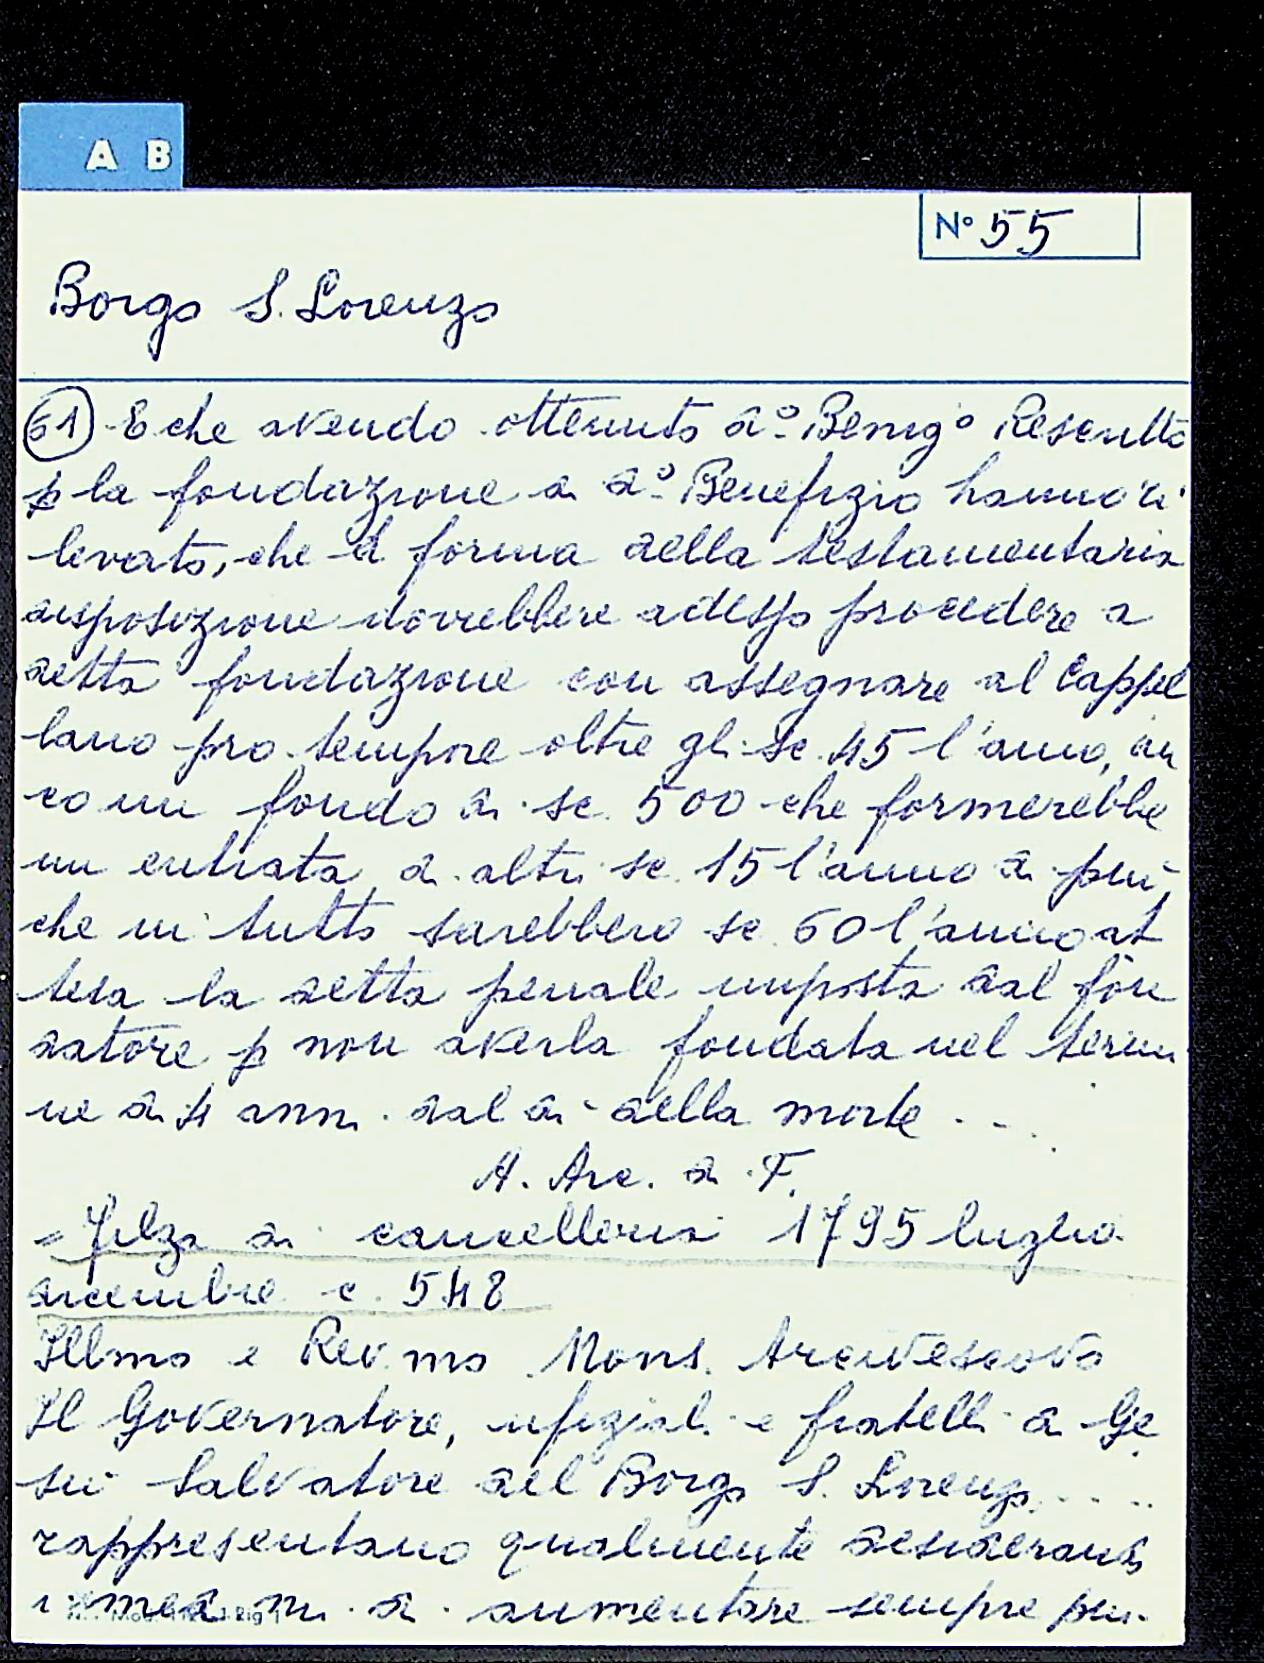 A B
N° 55
Borgo S. Lorenzo
61) E che avendo ottenuto d.º Benig.º Rescritto
p la fondazione di d.º Benefizio hanno ri
levato, che a forma della testamentaria
disposizione dovrebbere adesso procedere a
detta fondazione con assegnare al Cappel
lano pro tempore oltre gli sc. 45 l'anno, an
co un fondo di sc. 500 che formerebbe
un entrata di altri sc. 15 l'anno di più,
che in tutto sarebbero sc. 60 l'anno at
tesa la detta penale imposta dal fon
datore p non averla fondata nel termi
ne di 4 anni dal dì della morte ....
A. Arc. di F.
= Filza di cancelleria 1795 luglio
dicembre c. 548
Illmo e Rev.mo Mons. Arcivescovo
Il Governatore, ufizial. e fratelli di Ge
sù Salvatore del Borgo S. Lorenzo .....
rappresentano qualmente desiderand
i med.mi di aumentare sempre più